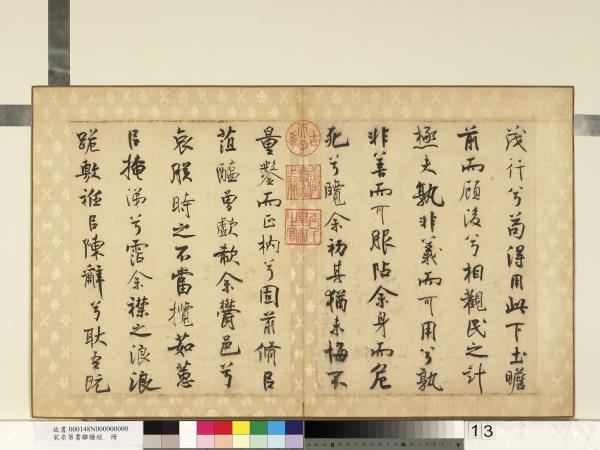 茂行兮苟得用此下土瞻
前而顧後兮相觀民之計
極夫孰非義而可用兮孰
非善而可服阽余身而危
死兮覽余初其猶未悔不
量鑿而正枘兮固前脩㠯
菹醢曾歔欷余鬱邑兮
哀朕時之不當攬茹蕙
㠯掩涕兮霑余襟之浪浪
跪敷衽㠯陳辭兮耿吾既
古希天子
故書 000148N000000000
宋米芾書離騷經 冊
13